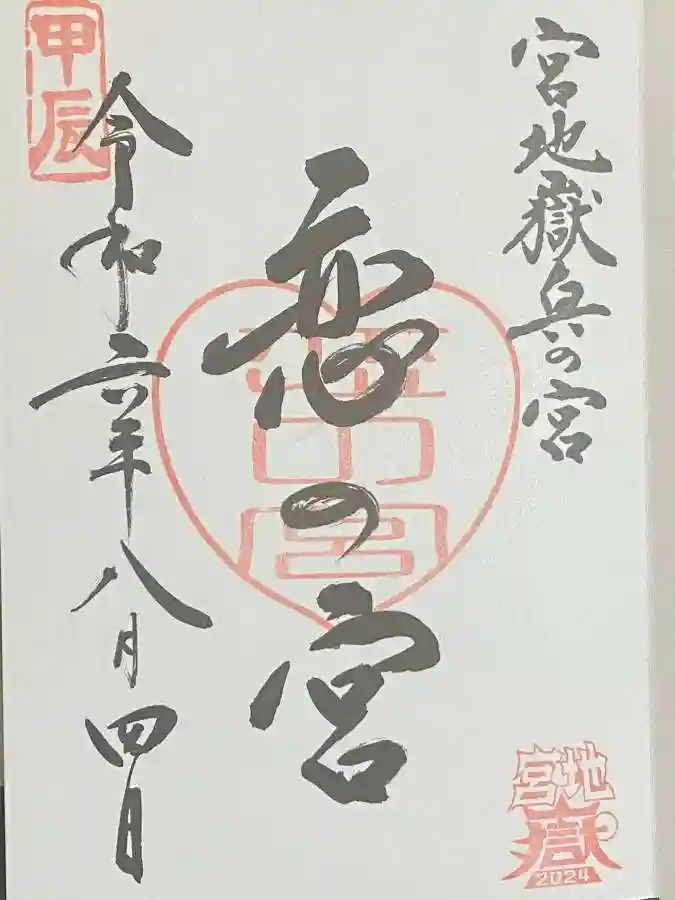 宮地嶽兵の宮
恋の宮
令和六年八月四日
甲辰
宮地嶽
2024